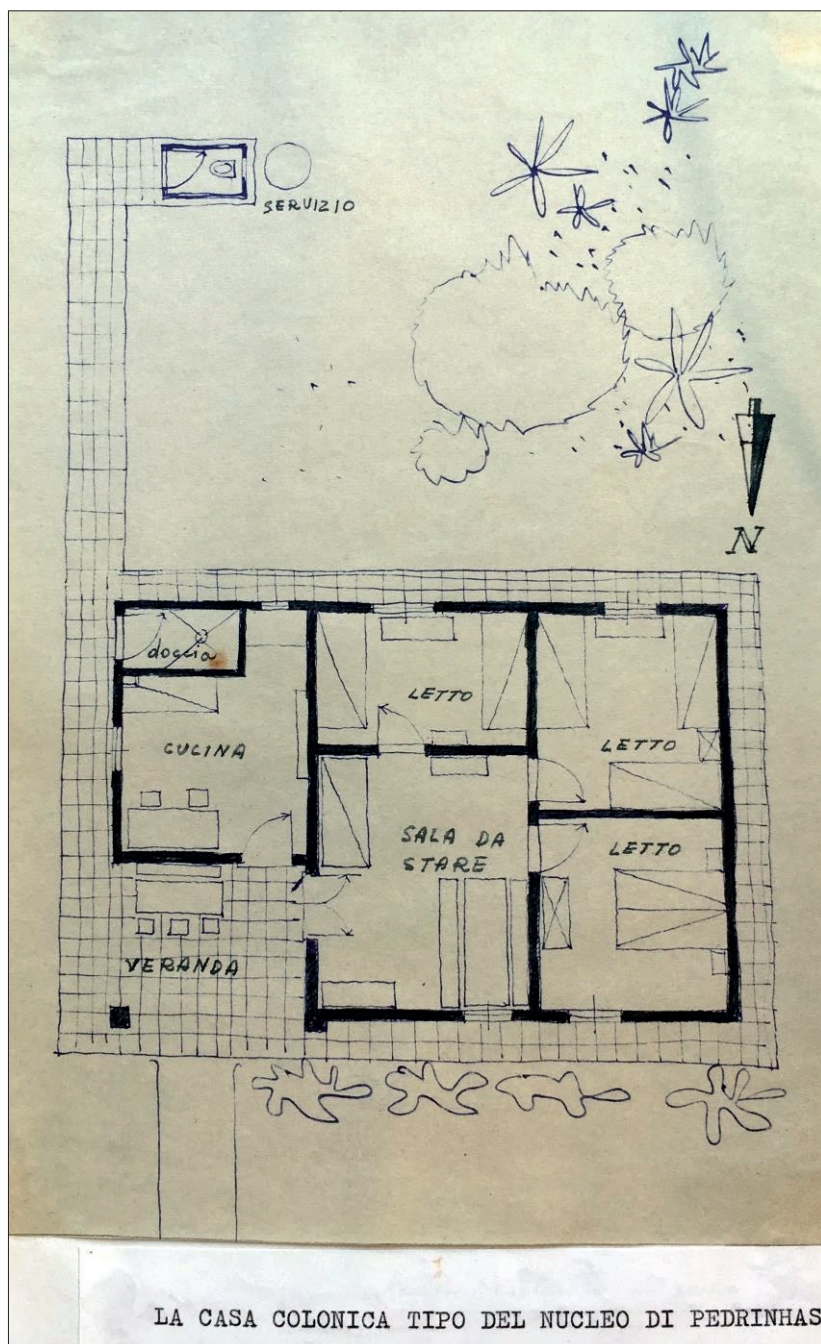 SERVIZIO
N
doccia
LETTO
CUCINA
LETTO
SALA DA
STARE
LETTO
VERANDA
LA CASA COLONICA TIPO DEL NUCLEO DI PEDRINHAS